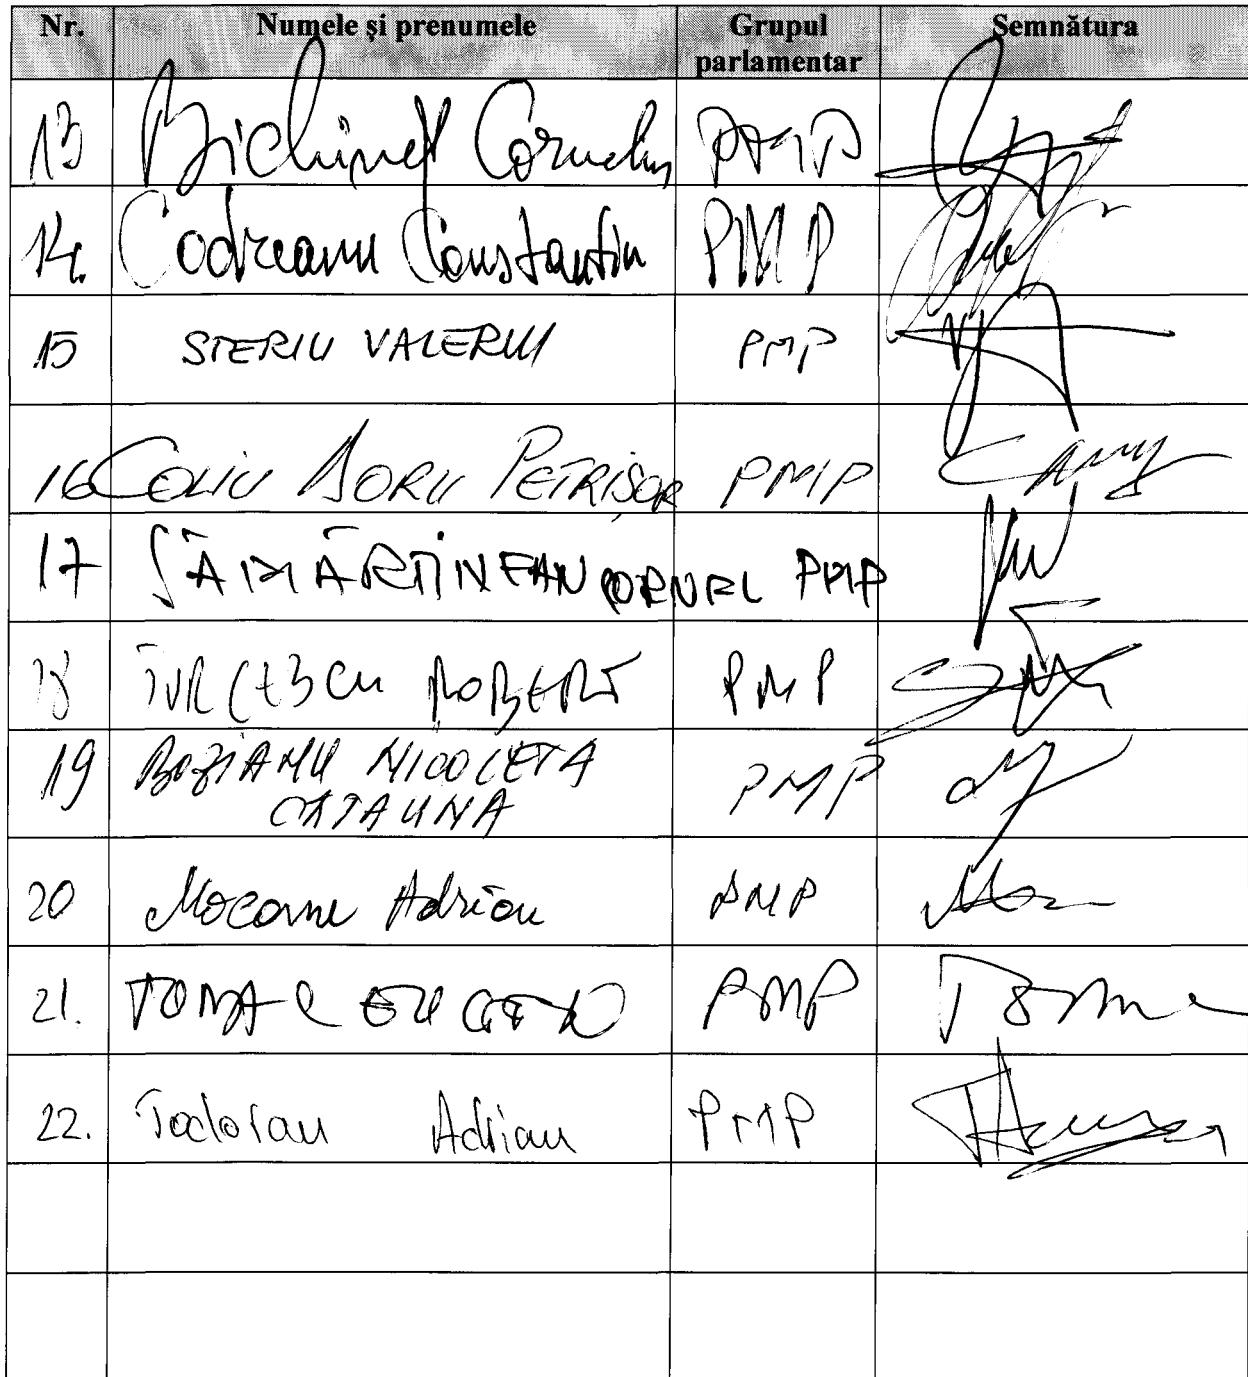 Nr. Numele și prenumele Grupul parlamentar Semnătura
13 Bichineț Corneliu PMP
14. Codreanu Constantin PMP
15 STERIU VALERIU PMP
16 COLIU DORU PETRIȘOR PMP
17 SĂMĂRTINEAN CORNEL PMP
18 TURCESCU ROBERT PMP
19 BOZIANU NICOLETA PMP
CATALINA
20 Mocanu Adrian PMP
21. TOMAC EUGEN PMP
22. Todoran Adrian PMP